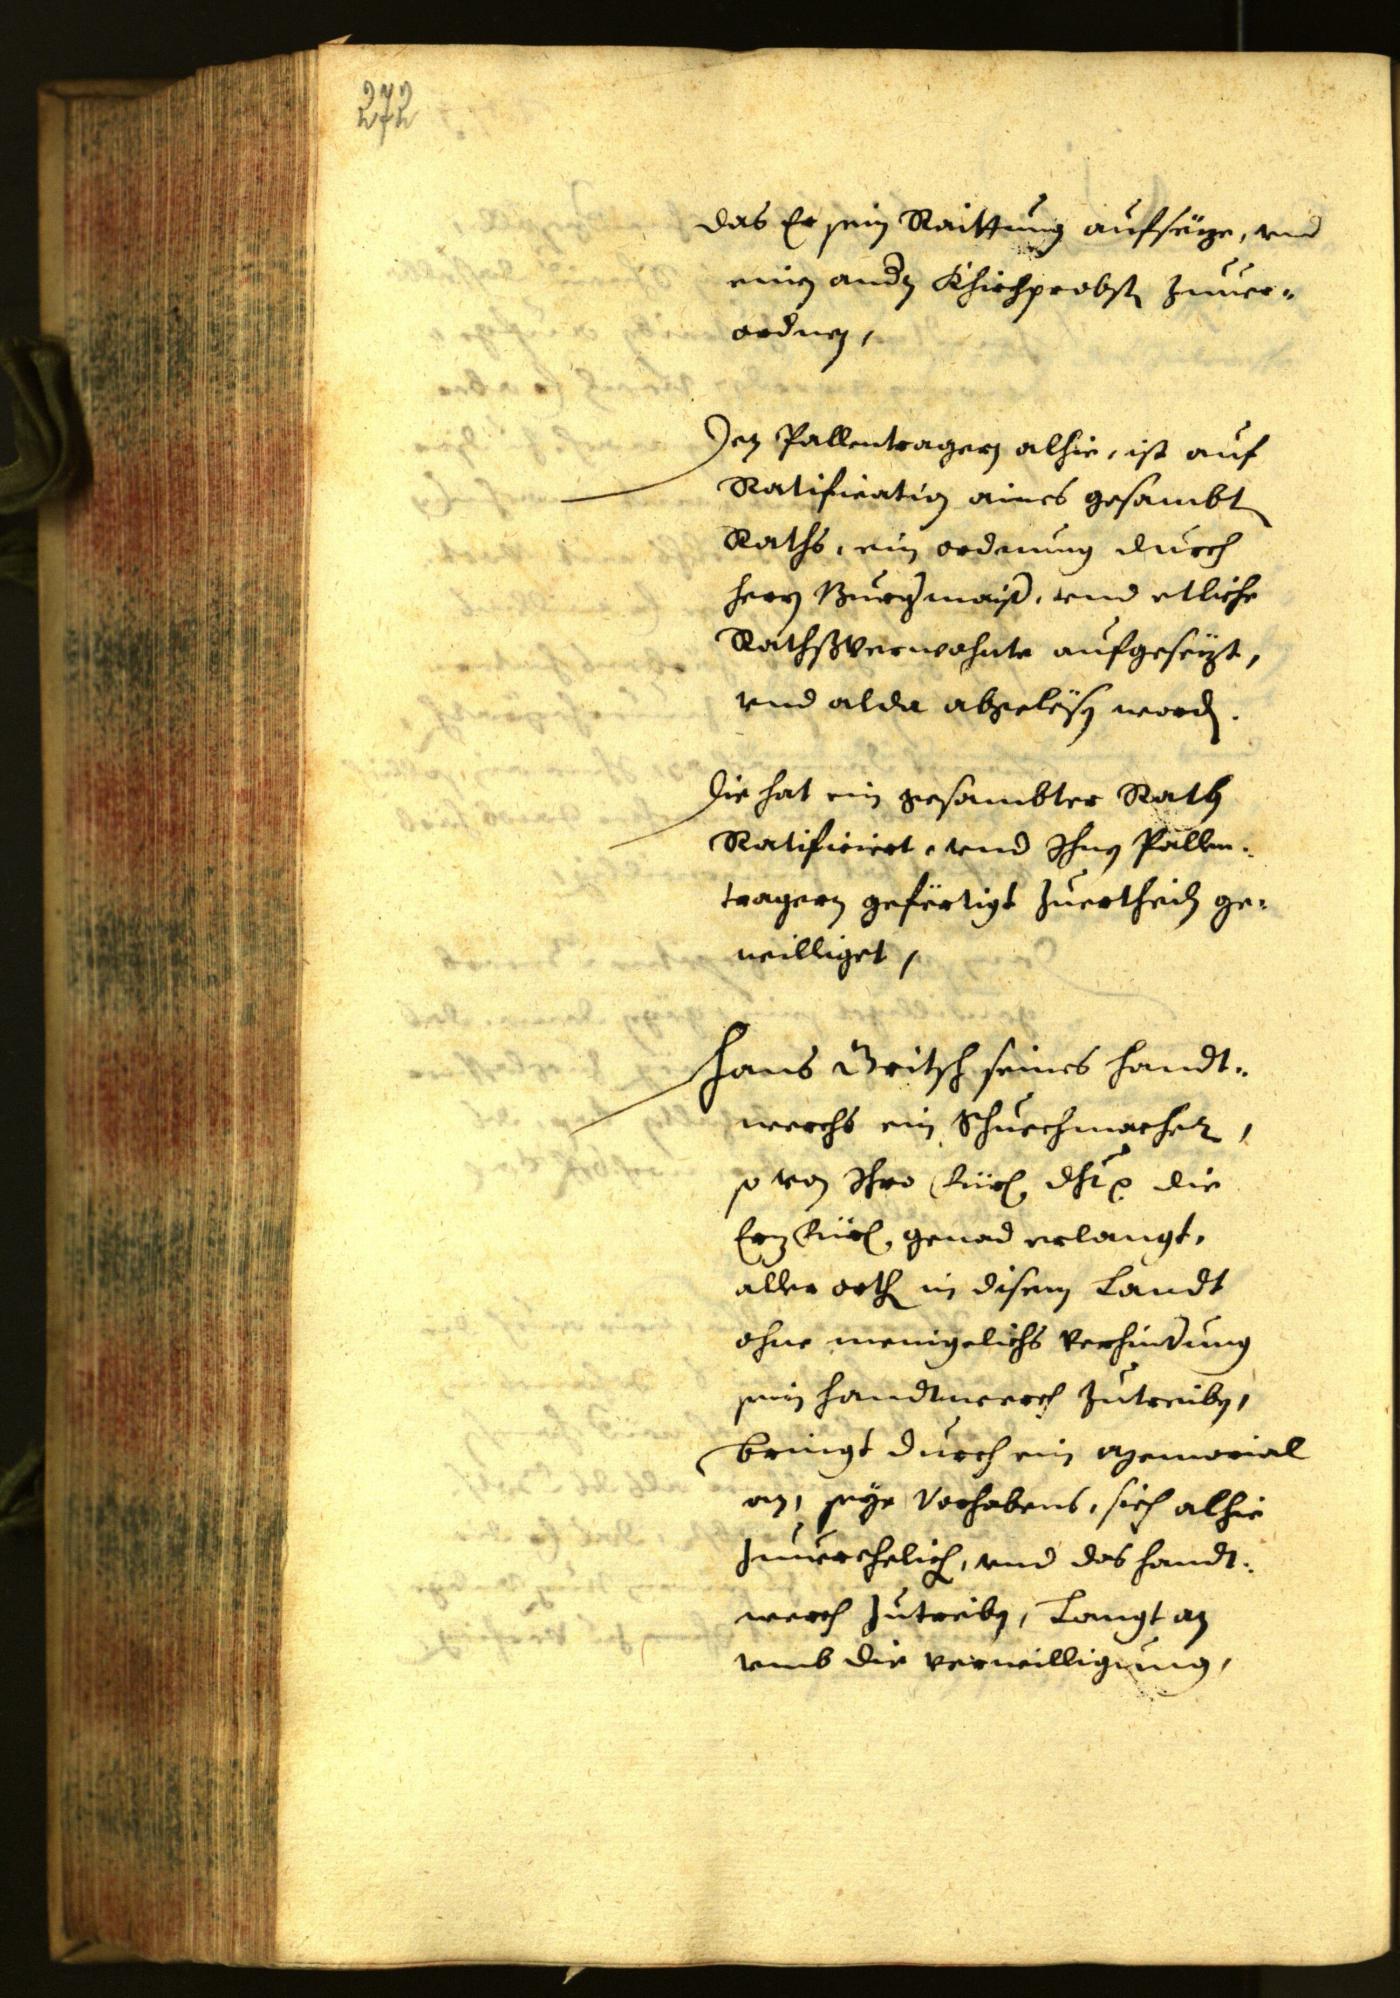 272
das Er sein Raittung aufseze, vnd
einen andn Khirchprobst zuuer-
ordnen,
Den Pallentragern alhie, ist auf
Ratification aines gesambt
Raths, ein ordnung durch
herrn Burgmaist, vnd etliche
Rathßverwohnte aufgesezt,
vnd alda abgelesen word.
Die hat ein gesambter Rath
Ratificiert, vnd Ihnen Pallen-
tragern gefertigt zuertheiln ge-
willliget,
Hans Britsch seines handt-
werchs ein Schuechmacher,
so von Ihro Fürl. dht die
genad erlangt,
aller orth in disem Landt
ohne menigelichs verhindung
sein handtwerch zutreiben,
bringt durch ein memorial
an, seye Vorhabens, sich alhie
zuuerehelich, vnd das handt-
werch zutreiben, Langt an
vmb die verwilligung,